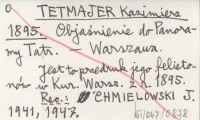 O TETMAJER Kazimierz
1895. Objaśnienie do Panora-
my Tatr. — Warszawa.
Jest to przedruk jego felieto-
nów w Kur. Warsz. z r. 1895.
Rec.: CHMIELOWSKI J.
1941, 1947.